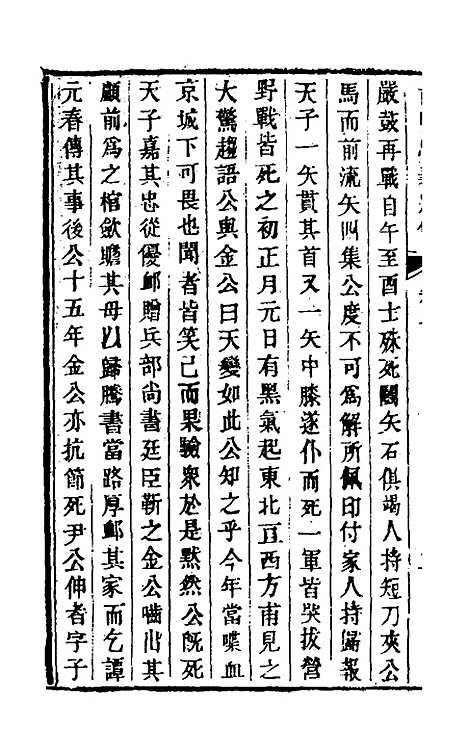 嚴鼓再戰自午至酉士殊死鬬矢石俱竭人持短刀夾公
馬而前流矢叫集公度不可爲解所佩印付家人持歸報
天子一矢貫其首又一矢中膝遂仆而死一軍皆哭拔營
野戰皆死之初正月元日有黑氣起東北亘西方甫見之
大驚趨語公與金公曰天變如此公知之乎今年當喋血
京城下可畏也聞者皆笑已而果驗衆於是默然公旣死
天子嘉其忠從優䘏贈兵部尚書廷臣靳之金公嚙齒其
顧前爲之棺斂贍其母以歸騰書當路厚䘏其家而乞譚
元春傳其事後公十五年金公亦抗節死尹公伸者字子